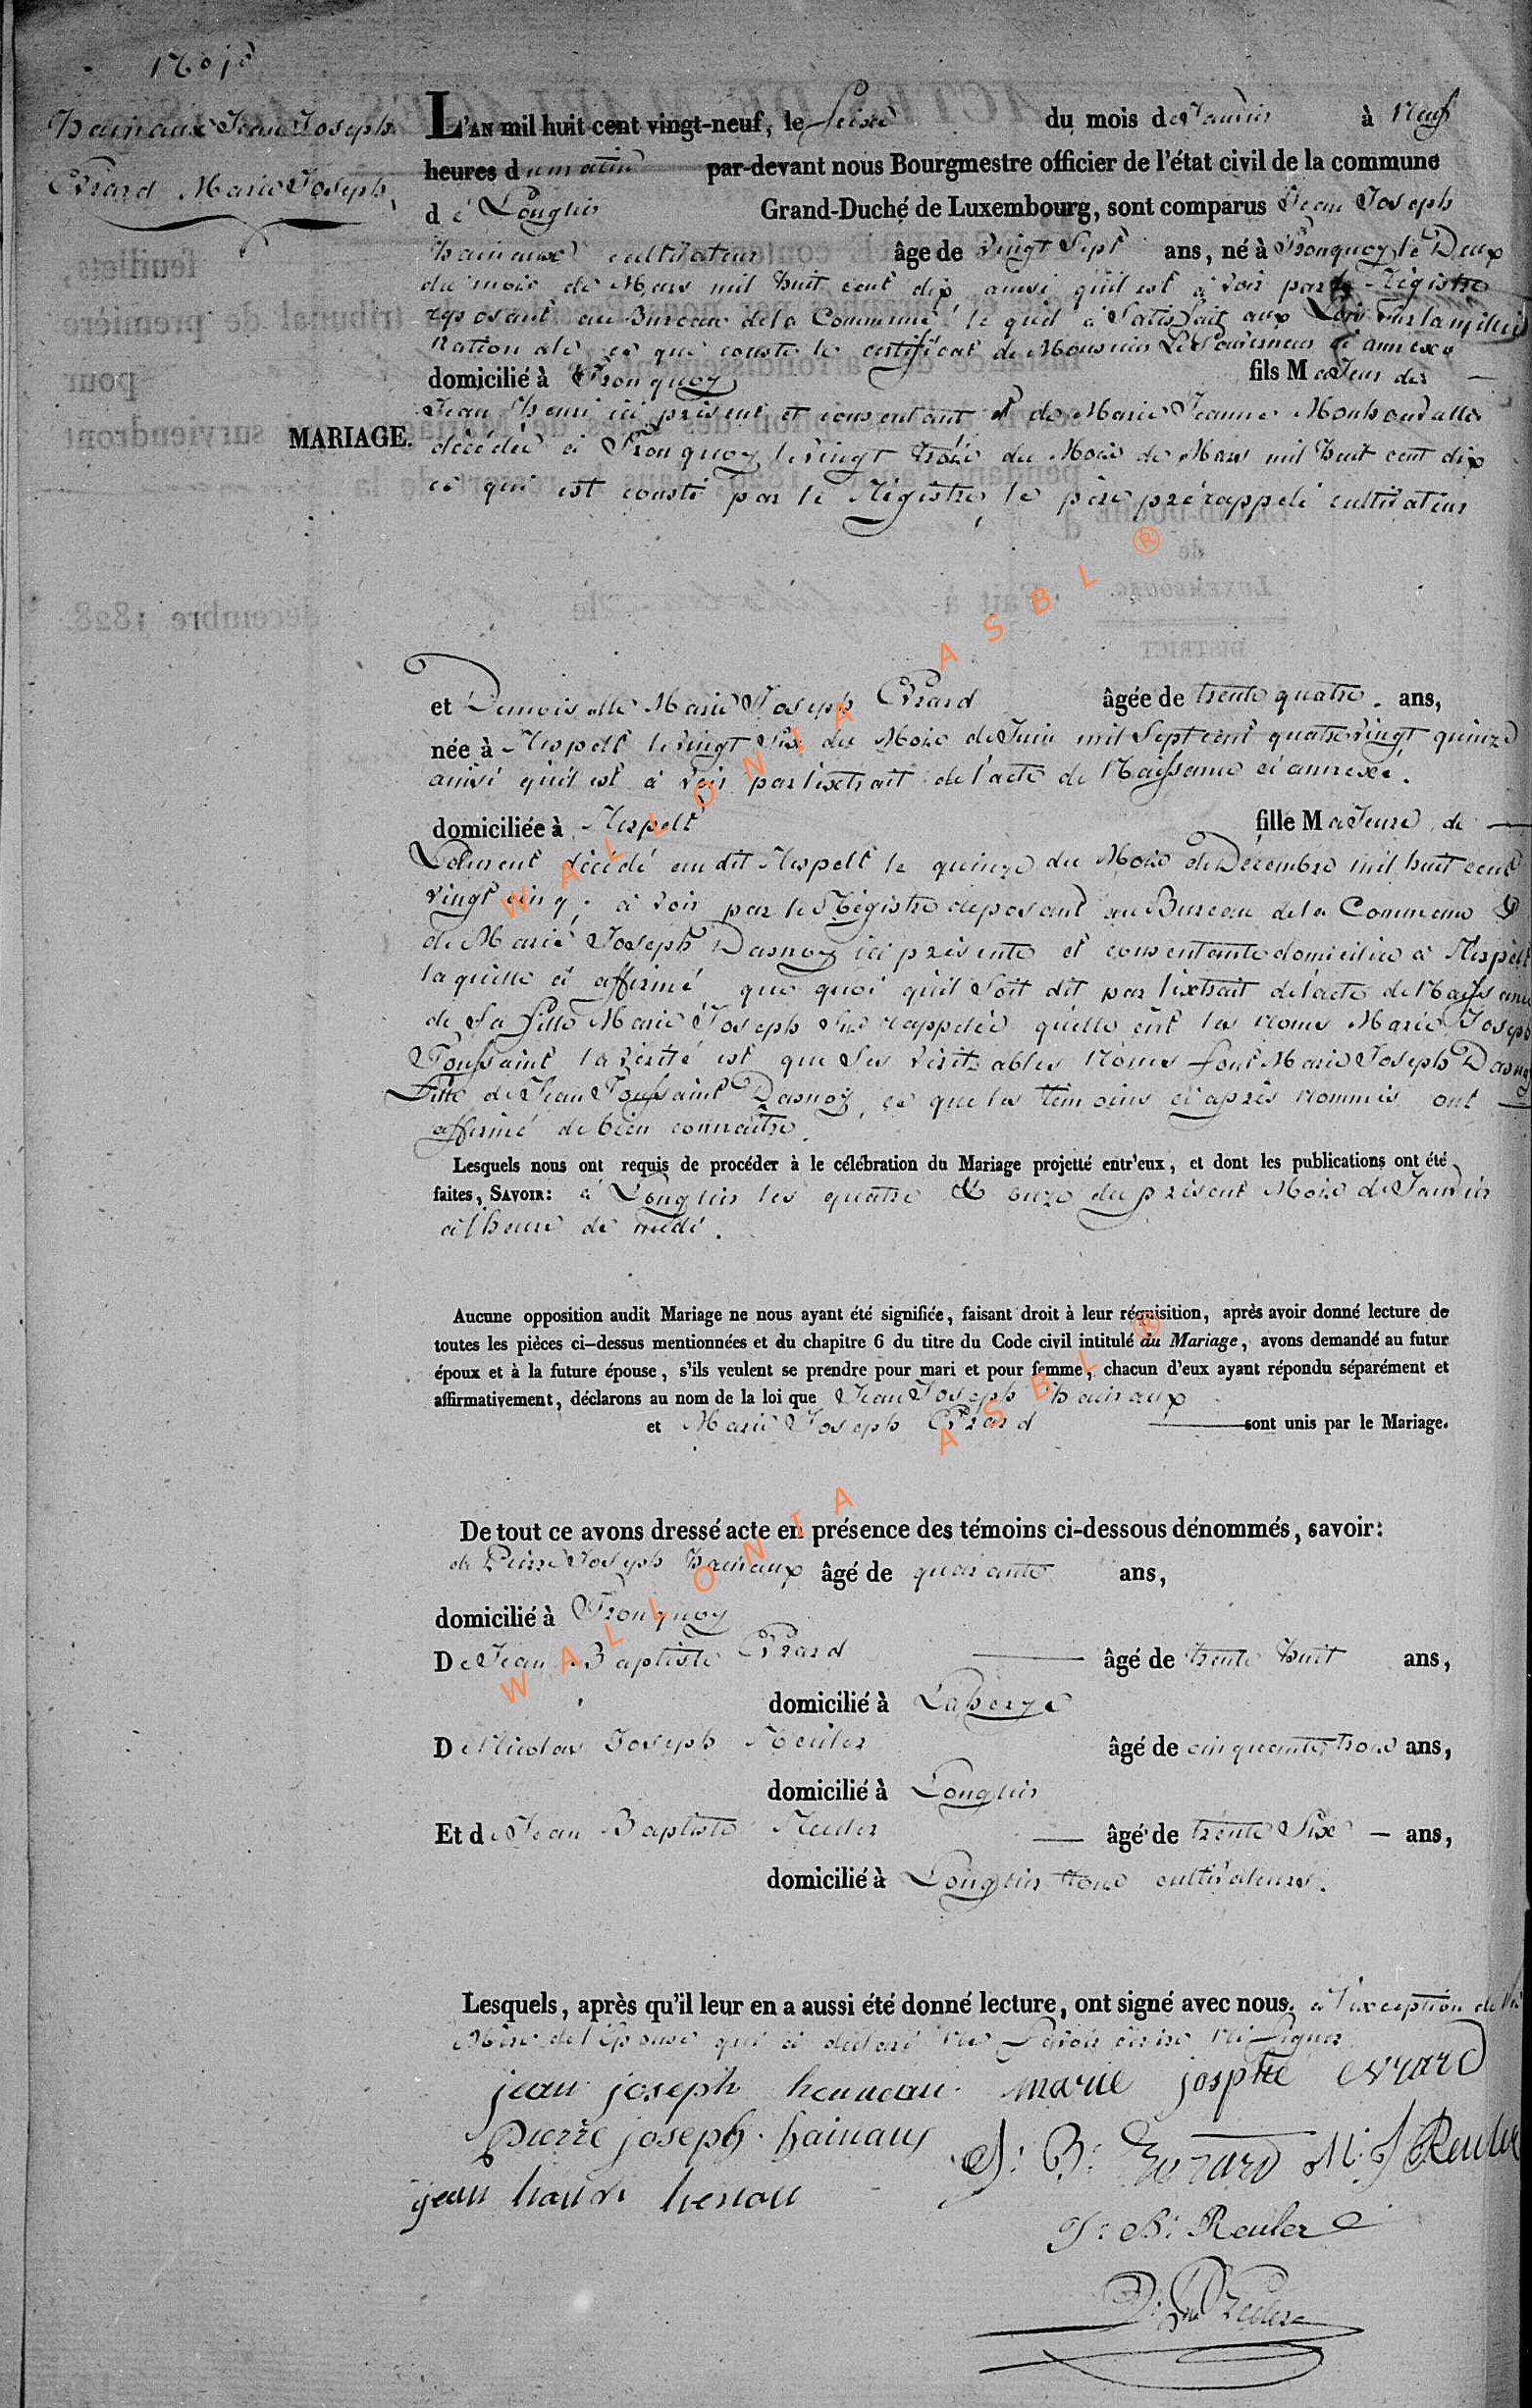 Hainaux Jean Joseph
Evrard Marie Joseph
L'AN mil huit cent vingt-neuf, le seize du mois de Janvier à neuf
heures du matin par-devant nous Bourgmestre officier de l'état civil de la commune
de Longlier Grand-Duché de Luxembourg, sont comparus Jean Joseph
hainaux cultivateur âge de vingt sept ans, né à Tronquoy le Deux
du mois de Mars mil huit cent dix ainsi qu'il est à voir par le Régistre
reposant au Bureau de la Commune, le quel à Satisfait aux Lois sur la milice
Nationale ce que conste le certificat de Monsieur Le Gouverneur ci annexé
domicilié à Tronquoy fils Majeur de
Jean henri ici présent et consentant et de Marie Jeanne
MARIAGE.
décédée à Tronquoy le vingt trois du Mois de Mars mil huit cent dix
ce qui est consté par le Régistre, le père prérappelé cultivateur
et Demoiselle Marie Joseph Evrard âgée de trente quatre. ans,
née à Respelt le vingt Six du Mois de Juin mil Sept cent quatre vingt quinze
ainsi qu'il est à voir par l'extrait de l'acte de Naissance ci annexé.
domiciliée à Respelt fille Majeure de
Laurent décédé au dit Respelt le quinze du Mois de Décembre mil huit cent
vingt cinq; à voir par le Régistre deposant au Bureau de la Commune &
de Marie Joseph Dasnoy ici présente et consentante domiciliée à Respelt
laquelle à affirmé que quoi qu'il Soit dit par l'extrait de l'acte de Naissance
de Sa fille Marie Joseph Sus rappelée qu'elle eût les noms Marie Joseph
Toussaint la vérité est que Ses véritables Noms sont Marie Joseph Dasnoy
Fille de Jean Toussaint Dasnoy, ce que les témoins ci après nommés ont
affirmé de bien connaître.
Lesquels nous ont requis de procéder à le célébration du Mariage projetté entr'eux, et dont les publications ont été
faites, SAVOIR: à Longlier les quatre & onze du présent Mois de Janvier
à l'heure de midi.
Aucune opposition audit Mariage ne nous ayant été signifiée, faisant droit à leur réquisition, après avoir donné lecture de
toutes les pièces ci-dessus mentionnées et du chapitre 6 du titre du Code civil intitulé du Mariage, avons demandé au futur
époux et à la future épouse, s'ils veulent se prendre pour mari et pour femme, chacun d'eux ayant répondu séparément et
affirmativement, déclarons au nom de la loi que Jean Joseph hainaux
et Marie Joseph Evrard sont unis par le Mariage.
De tout ce avons dressé acte en présence des témoins ci-dessous dénommés, savoir:
de Pierre Joseph hainaux âgé de quarante ans,
domicilié à Tronquoy
De Jean Baptiste Evrard âgé de trente huit ans,
domicilié à Laherye
De Nicolas Joseph Reuler âgé de cinquante trois ans,
domicilié à Longlier
Et de Jean Baptiste Reuler âgé de trente Six ans,
domicilié à Longlier tous cultivateurs.
Lesquels, après qu'il leur en a aussi été donné lecture, ont signé avec nous. à l'exception de la
Mère de l'épouse qui à déclaré ne Savoir écrire ni Signer
jean joseph henneau marie josphe evrard
pierre joseph hainaux J: B: Evrard N: J Reuler
jean handri henau
J: B: Reuler
WALLONIA ASBL ®
WALLONIA ASBL ®